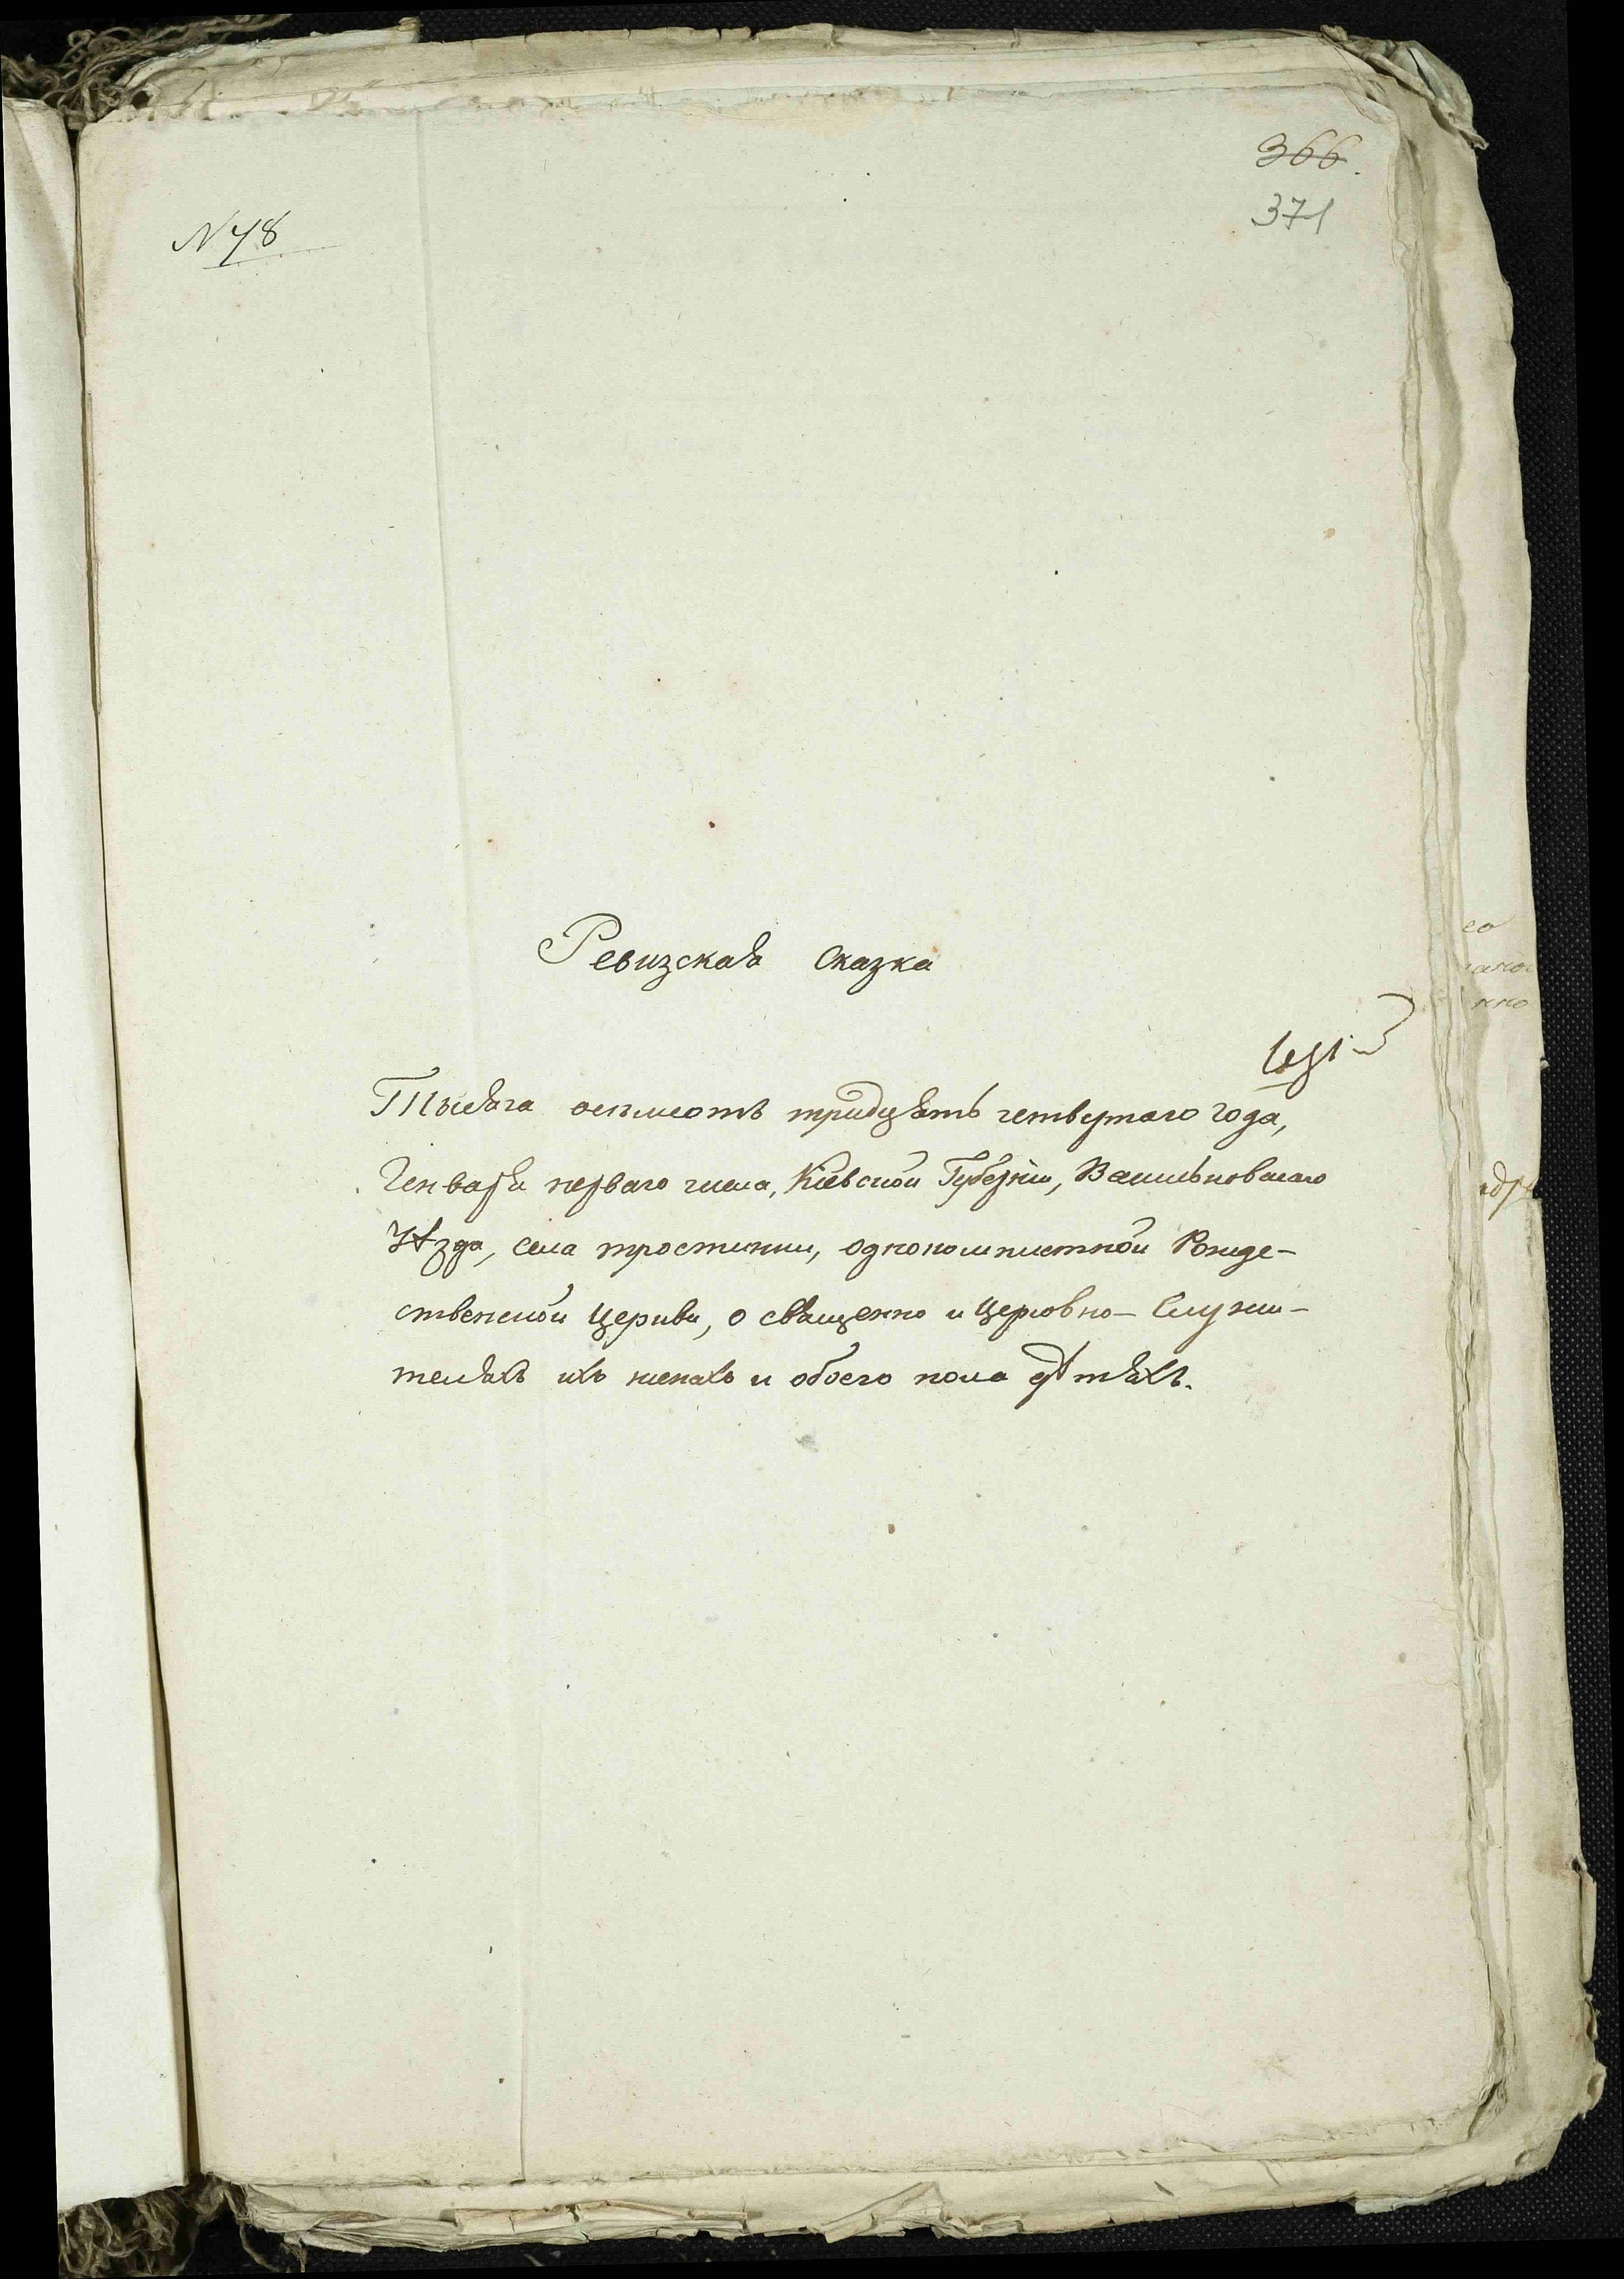 366.
371
N 48
Ревизская Сказка
Тысяча осьмсотъ тридцять четвертаго года,
Генваря перваго числа, Кіевской Губерніи, Васильковскаго
Уѣзда, села тростинки, однокомплетной Рожде-
ственской Церкви, о священно и Церковно-Служи-
теляхъ ихъ женахъ и обоего пола дѣтяхъ.